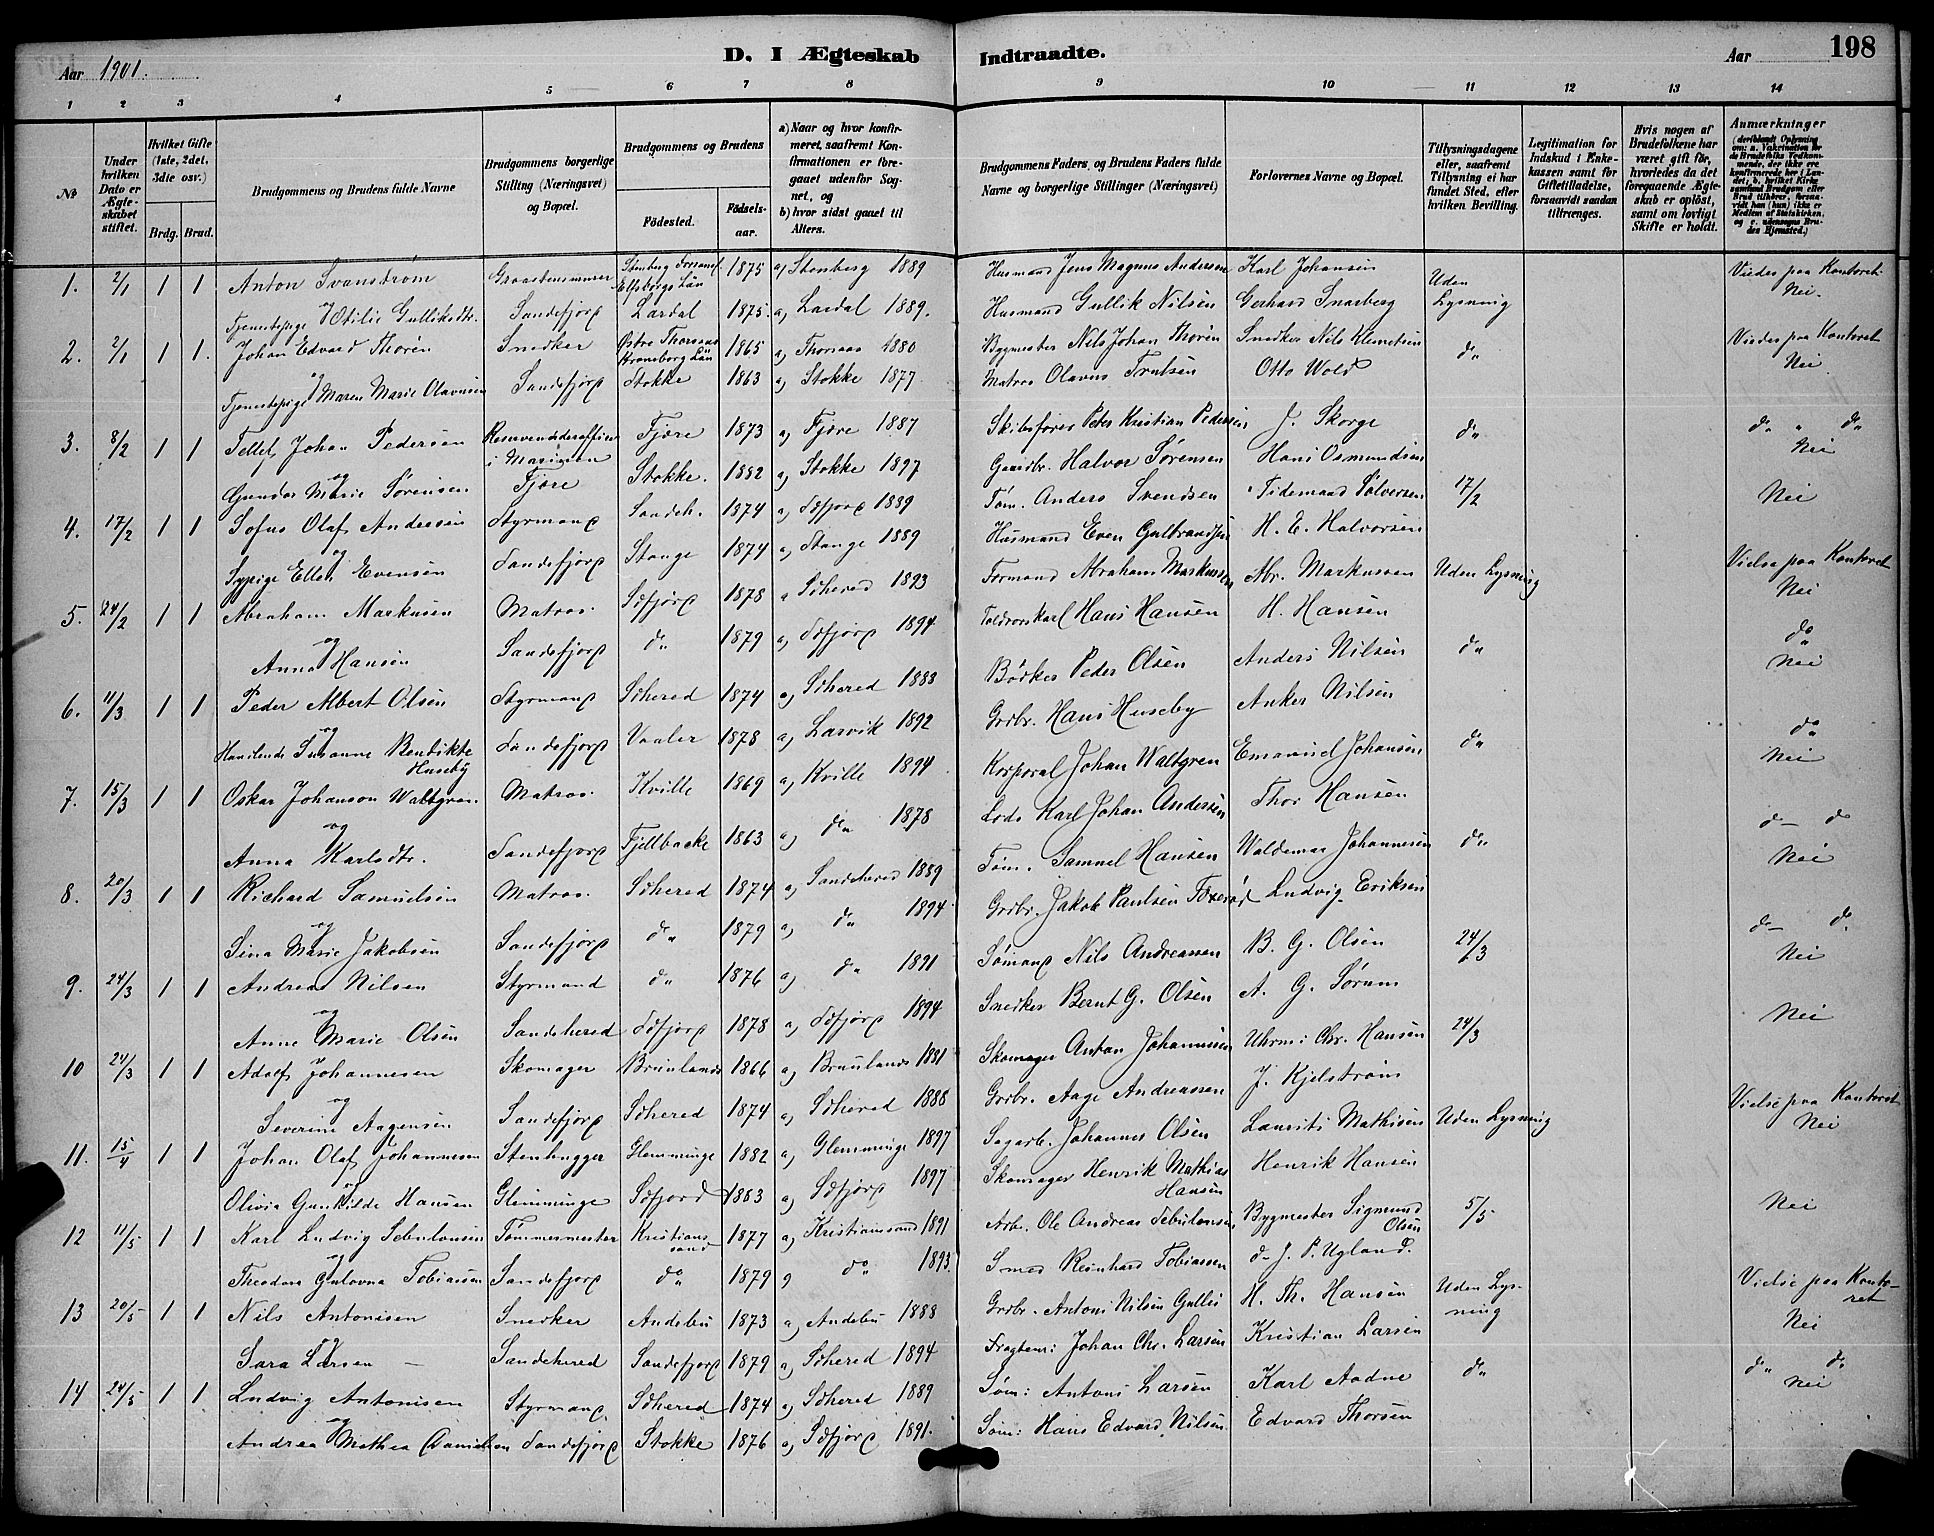 Aar 1901. D. I Ægteskab Indtraadte. Aar 198
1 2 3 4 5 6 7 8 9 10 11 12 13 14
No
Under hvilken Dato er Ægteskabet stiftet.
Hvilket Gifte (1ste, 2det, 3die osv.)
Brdg. Brud.
Brudgommens og Brudens fulde Navne
Brudgommens borgerlige Stilling (Næringsvei) og Bopæl.
Brudgommens og Brudens
Födested. Födselsaar.
a) Naar og hvor konfirmeret, saafremt Konfirmationen er foregaaet udenfor Sognet, og
b) hvor sidst gaaet til Alters.
Brudgommens Faders og Brudens Faders fulde Navne og borgerlige Stillinger (Næringsvei)
Forlovernes Navne og Bopæl.
Tillysningsdagene eller, saafremt Tillysning ei har fundet Sted, efter hvilken Bevilling.
Legitimation for Indskud i Enkekassen samt for Giftetilladelse, forsaavidt saadan tiltrænges.
Hvis nogen af Brudefolkene har været gift før, hvorledes da det foregaaende Ægteskab er opløst, samt om lovligt Skifte er holdt.
Anmærkninger
(deriblandt Oplysning om: a. Vakcination for de Brudefolks Vedkommende, der ikke ere konfirmerede her i Landet; b. hvilket Kirkesamfund Brudgom eller Brud tilhører, forsaavidt han (hun) ikke er Medlem af Statskirken, og c. udensogns Brudes Hjemsted.)
1. 2/1 1 1 Anton Svanstrøm Graastensminer Stenberg Elfsborgs Län 1875 a) Stenberg 1889 Husmand Jens Magnus Andersen Karl Johansen Uden Lysning Vielse paa Kontoret Nei.
og Tjenestepige Otilie Gulliksdtr. Sandefjord Lardal 1875. a) Lardal 1889. Husmand Gullik Nilsen Gerhard Snarberg
2. 2/1 1 1. Johan Edvard Thorén Snedker Østre Thorsaas Kronoborg Län 1865 a) Thorsaas 1880 Bygmester Nils Johan Thorén Snedker Nils Klemetsen do Vielse paa Kontoret Nei.
og Tjenestepige Maren Marie Olavesen Sandefjord Stokke 1863 a) Stokke 1877 Matros Olavus Trulsen Otto Wold
3. 8/2 1 1 Tellef Johan Pedersen i Marinen Fjære 1873 a) Fjære 1887 Skibsfører Peter Kristian Pedersen J. Skorge do do " do Nei
og Gunda Marie Sørensen Fjære Stokke. 1882 a) Stokke 1897 Gaardbr. Halvor Sørensen Hans Osmundsen
4. 17/2 1 1 Sofus Olaf Andersen Styrmand Sandeh. 1874 a) Sdfjord 1889 Tøm. Anders Svendsen Tidemand Sølversen 17/2 Nei
og Sypige Ellen Evensen Sandefjord Stange 1874 a) Stange 1889 Husmand Even Gulbrandsen H. E. Halvorsen
5. 24/2 1 1 Abraham Markusen Matros. Sdfjord 1878 a Sdhered 1893 Formand Abraham Markussen Abr. Markussen Uden Lysning Vielse paa Kontoret Nei
og Anna Hansen Sandefjord do 1879 a) Sdfjord 1894 Toldrorskarl Hans Hansen H. Hansen
6. 11/3 1 1 Peder Albert Olsen Styrmand Sdhered 1874 a) Sdhered 1888 Bødker Peder Olsen Anders Nilsen do do Nei
og Handlende Susanne Bendikte Huseby Sandefjord Vaaler 1878 a) Larvik 1892 Grdbr. Hans Huseby Anker Nilsen
7. 15/3 1 1 Oskar Johanson Waltgren Matros. Kville 1869 a) Kville 1894 Korporal Johan Waltgren Emanuel Johansen do do Nei
og Anna Karlsdtr. Sandefjord Fjellbacke 1863 a) do 1878 Lods Karl Johan Andersen Thor Hansen
8. 20/3 1 1 Richard Samuelsen Matros. Sdhered 1874 a) Sandehered 1889 Tøm. Samuel Hansen Waldemar Johannesen do d- d Nei
og Sina Marie Jakobsen Sandefjord do 1879 a) do 1894 Grdbr. Jakob Paulsen Foxerød Ludvig Eriksen
9. 24/3 1 1 Andreas Nilsen Styrmand do 1876 a) do 1891 Sømand Nils Andreassen B. G. Olsen 24/3 d- d. Nei
og Anne Marie Olsen Sandehered Sdfjord 1878 a) Sdfjord 1894 Snedker Bernt G. Olsen A. G. Sørum
10 24/3 1 1 Adolf Johannesen Skomager Brunlanes 1866 a) Brunlanes 1881 Skomager Anton Johannesen Uhrm: Chr. Hansen 24/3 Nei
og Severine Aagesen Sandefjord Sdhered 1874 a) Sdhered 1888 Grdbr. Aage Andreassen J. Kjelstrøm
11. 15/4 1 1 Johan Olaf Johannesen Stenhugger Glemminge 1882 a) Glemminge 1897 Sagarb. Johannes Olsen Laurits Mathisen Uden Lysning Vielse paa Kontoret Nei
og Olivia Gunhilde Hansen Glemminge Sdfjord 1883 a) Sdfjord 1897 Skomager Henrik Mathias Hansen Henrik Hansen
12 11/5 1 1 Karl Ludvig Sebulonsen Tømmermester Kristianssand 1877 a) Kristianssand 1891 Arb. Ole Andreas Sebulonsen Bygmester Sigmund Olsen 5/5 Nei
og Theodora Gulovna Tobiassen Sandefjord do 1879 a) do 1893. Smed Reinhard Tobiassen d- J. P. Ugland.
13 20/5 1 1 Nils Antonisen Snedker Andebu 1873 a) Andebu 1888 Grdbr. Antoni Nilsen Gulli H. Th. Hansen Uden Lysning Vielse paa Kontoret Nei
og Sara Larsen - Sandehered Sandefjord 1879 a) Sdhered 1894 Fragtem: Johan Chr. Larsen Kristian Larsen
14 24/5 1 1 Ludvig Antonisen Styrmand Sdhered 1874 a) Sdhered 1889 Søm: Antons Larsen Karl Aadne do do do Nei
og Andrea Mathea Danielsen Sandefjord Stokke 1876 a) Sdfjord 1891. Søm: Hans Edvard Nilsen Edvard Thorsen